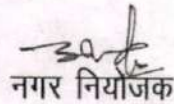 नगर नियोजक